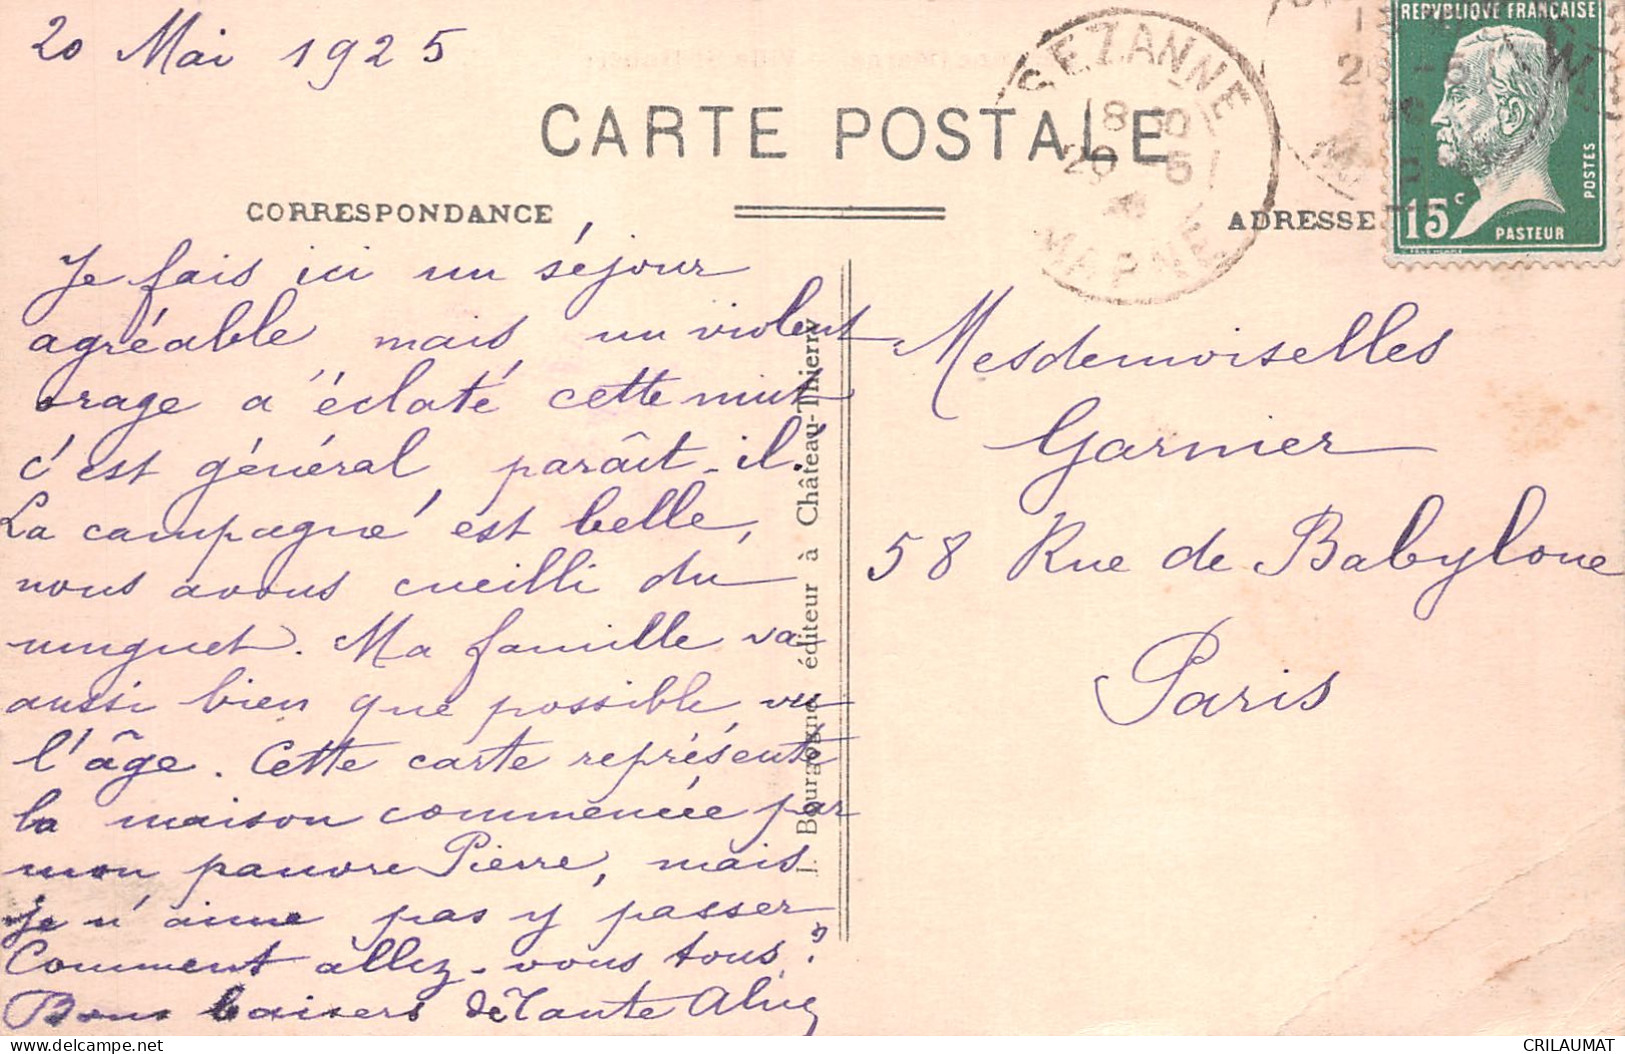 20 Mai 1925
CARTE POSTALE
CORRESPONDANCE
ADRESSE
SEZANNE
18 30
20 5
MARNE
REPVBLIQVE FRANÇAISE
POSTES
15c
PASTEUR
Je fais ici un séjour
agréable mais un violent
orage a éclaté cette nuit
c'est général, paraît-il.
La campagne est belle,
nous avons cueilli du
muguet. Ma famille va
aussi bien que possible, vu
l'âge. Cette carte représente
la maison commencée par
mon pauvre Pierre, mais
je n'aime pas y passer
Comment allez-vous tous?
Bons baisers de Tante
Bourgogne, éditeur à Château-Thierry
Mesdemoiselles
Garnier
58 Rue de Babylone
Paris
CRILAUMAT